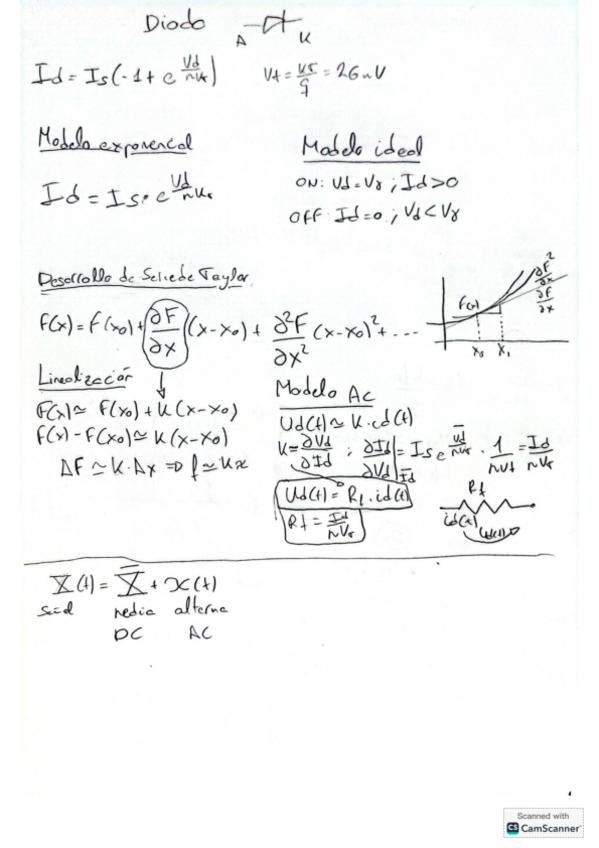 Diodo
A K
Id = Is(-1 + e^(Vd/nVt)) Vt = KT/q = 26mV
Modelo exponencial
Id = Is · e^(Vd/nVt)
Modelo ideal
ON: Vd = Vγ ; Id > 0
OFF: Id = 0 ; Vd < Vγ
Desarrollo de Serie de Taylor
F(x) = F(x0) + ∂F/∂x (x-x0) + ∂²F/∂x² (x-x0)² + ...
F(x) ∂F² ∂x ∂F ∂x
x0 x1
Linealización
F(x) ≃ F(x0) + K(x-x0)
F(x) - F(x0) ≃ K(x-x0)
ΔF ≃ K·Δx ⇒ f ≃ Kx
Modelo Ac
Ud(t) ≃ K·id(t)
K = ∂Vd/∂Id ; ∂Id/∂Vd |Id = Is e^(Vd/nVt) · 1/nVt = Id/nVt
Ud(t) = Rf · id(t)
Rf = Id/nVt
Rf
id(t)
X(t) = X̄ + x(t)
media alterna
DC AC
Scanned with
CS CamScanner